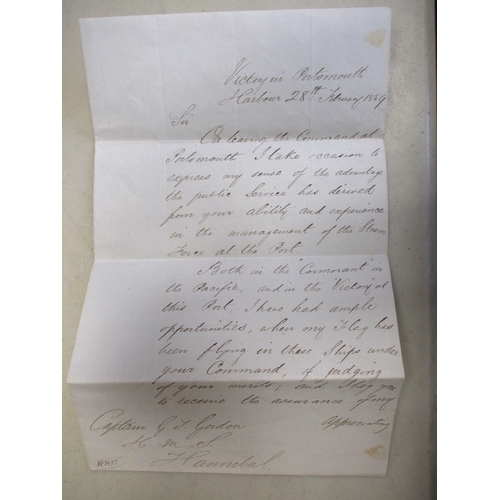 Victory in Portsmouth
Harbour 28th February 1859
Sir
On leaving the Command at
Portsmouth I take occasion to
express my sense of the advantage
the public Service has derived
from your ability and experience
in the management of the Steam
Force at the Port.
Both in the "Cormorant" in
the Pacific, and in the Victory at
this Port, I have had ample
opportunities, when my Flag has
been flying in these Ships under
your Command, of judging
of your merits; and I beg you
to receive the assurance of my
appreciating
Captain G T Gordon
H. M. S
Hannibal